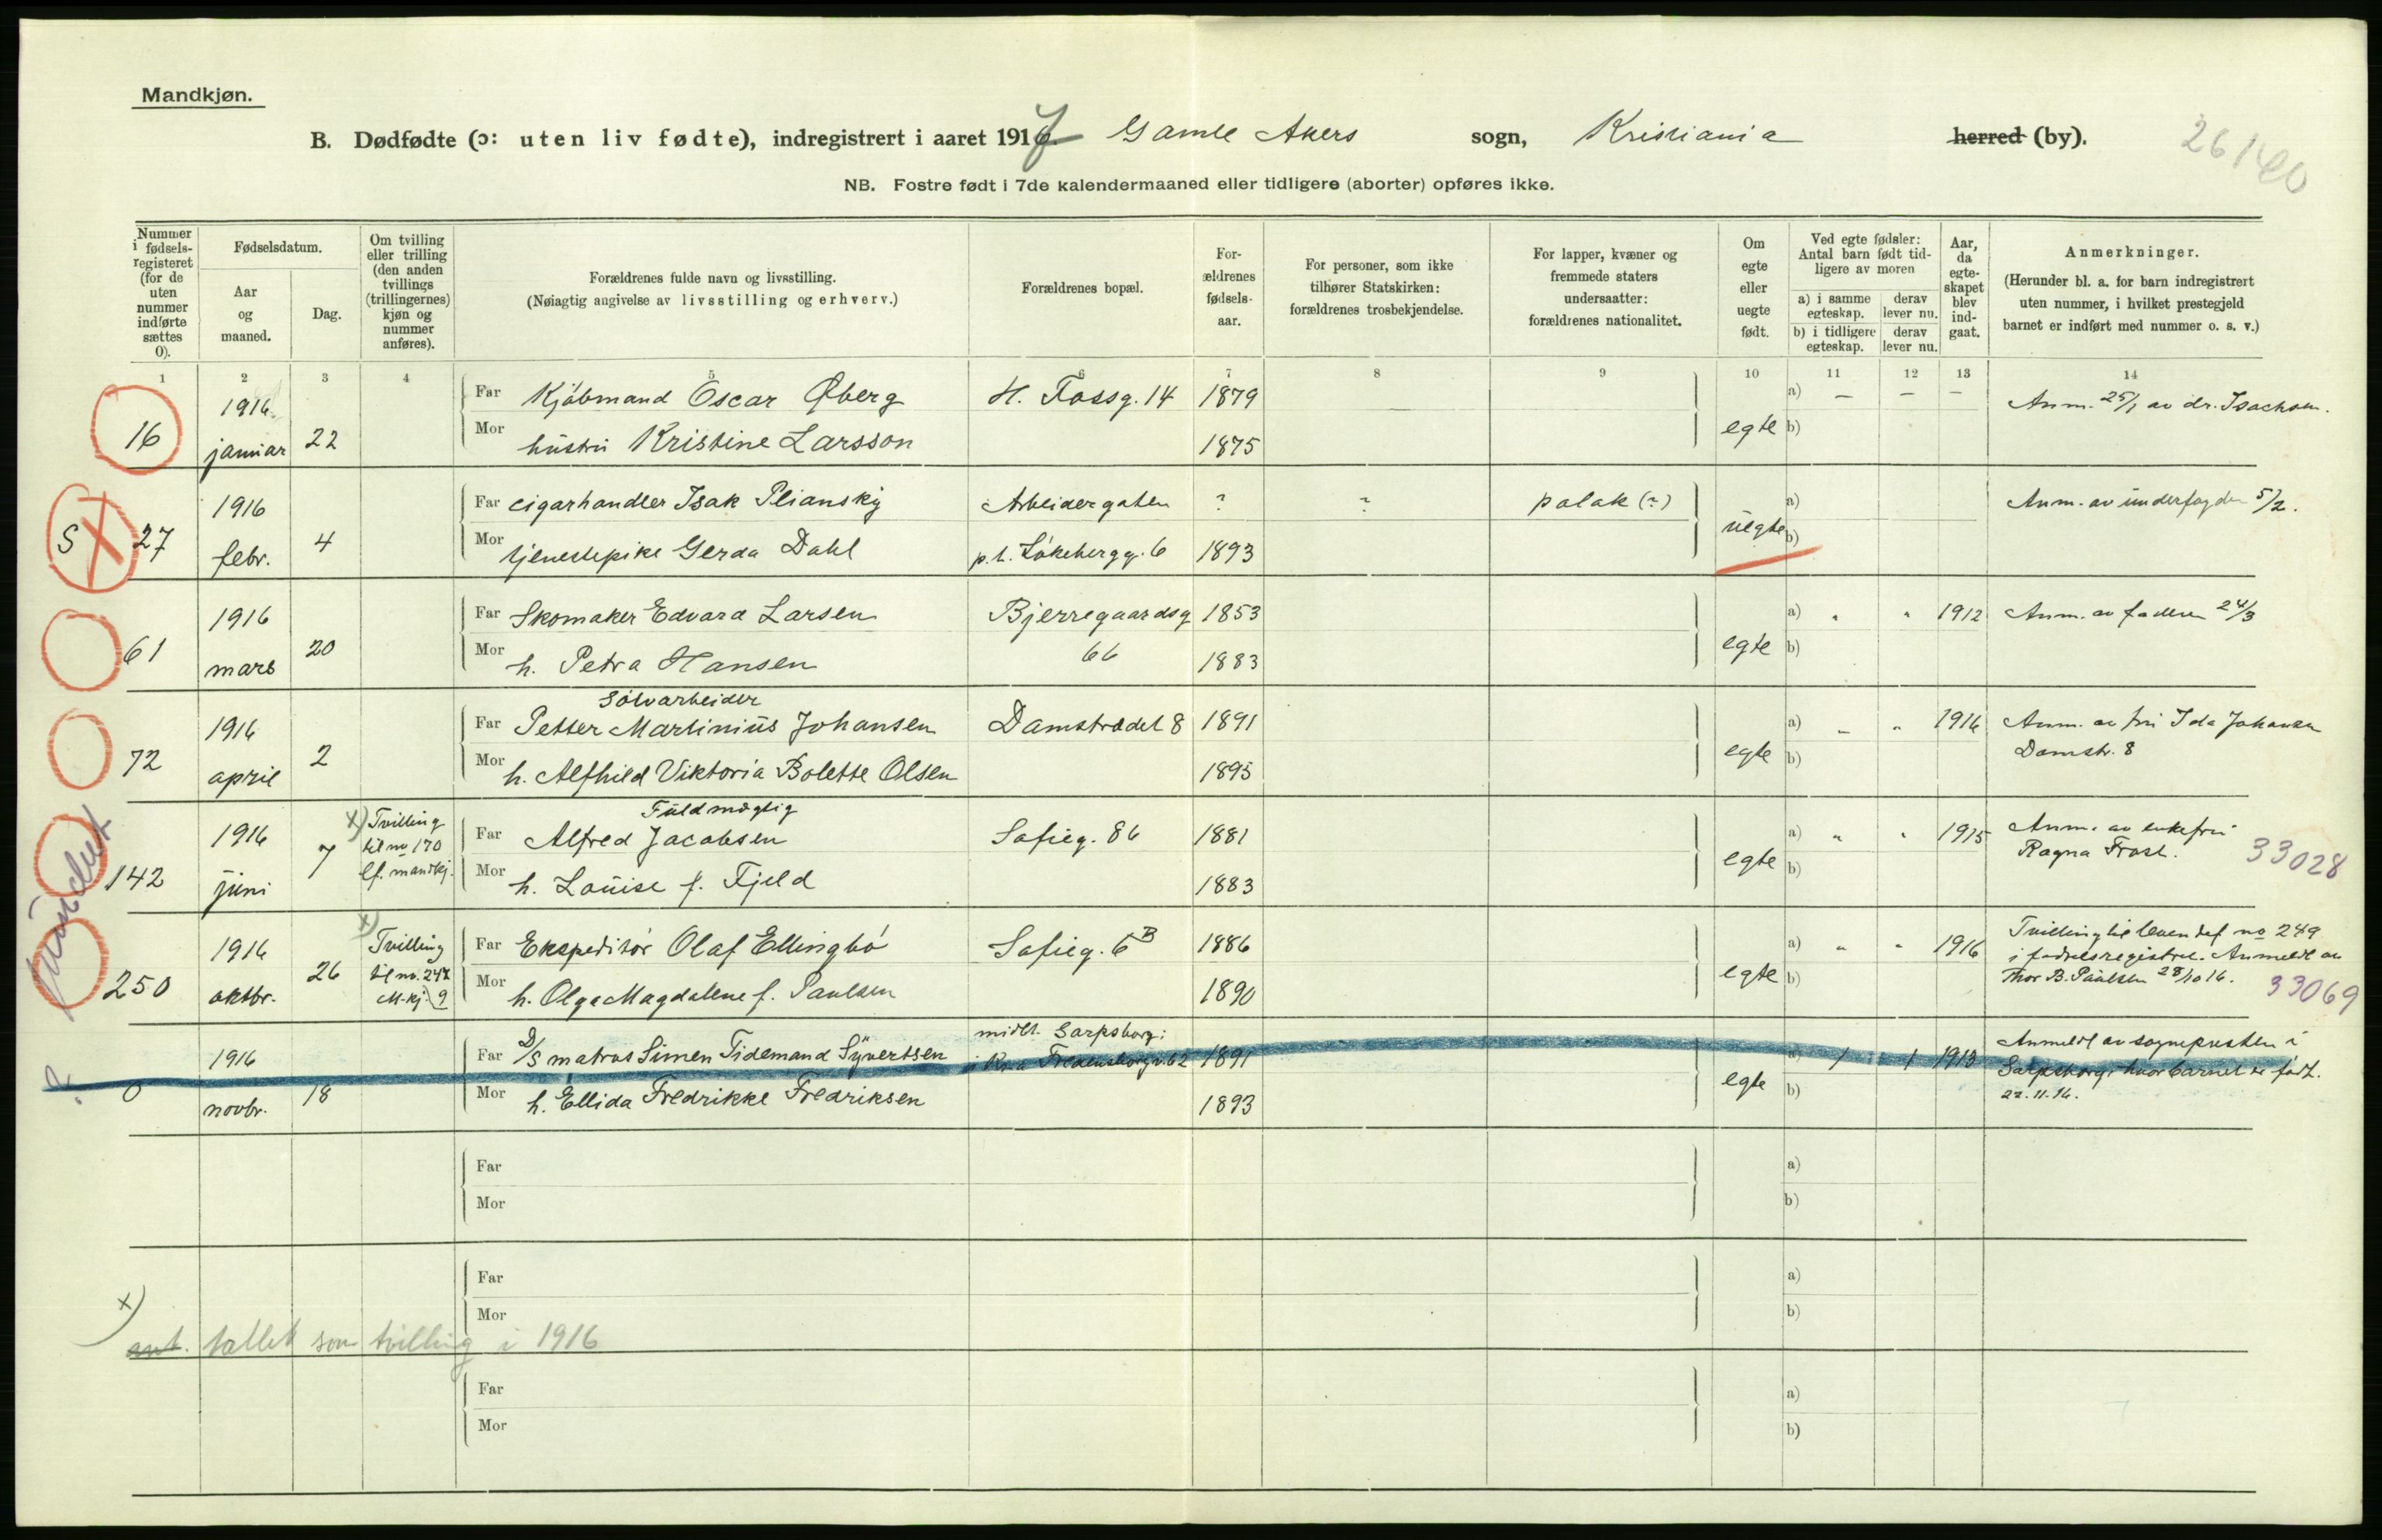 Mandkjøn.
B. Dødfødte (ɔ: uten liv fødte), indregistrert i aaret 1917 Gamle Akers sogn, Kristiania herred (by).
26140
NB. Fostre født i 7de kalendermaaned eller tidligere (aborter) opføres ikke.
Nummer i fødsels-registeret (for de uten nummer indførte sættes 0).
Fødselsdatum.
Aar og maaned.
Dag.
Om tvilling eller trilling (den anden tvillings (trillingernes) kjøn og nummer anføres).
Forældrenes fulde navn og livsstilling.
(Nøiagtig angivelse av livsstilling og erhverv.)
Forældrenes bopæl.
For-ældrenes fødsels-aar.
For personer, som ikke tilhører Statskirken: forældrenes trosbekjendelse.
For lapper, kvæner og fremmede staters undersaatter: forældrenes nationalitet.
Om egte eller uegte født.
Ved egte fødsler: Antal barn født tid-ligere av moren
a) i samme egteskap. derav lever nu.
b) i tidligere egteskap. derav lever nu.
Aar, da egte-skapet blev ind-gaat.
Anmerkninger.
(Herunder bl. a. for barn indregistrert uten nummer, i hvilket prestegjeld barnet er indført med nummer o. s. v.)
1 2 3 4 5 6 7 8 9 10 11 12 13 14
1916 Far Kjöbmand Oscar Øberg H. Fossg. 14 1879 — a) — — — Anm. 25/1 av dr. Isachsen.
16 januar 22 Mor hustru Kristine Larsson 1875 egte b)
S 27 1916 Far cigarhandler Isak Pliansky Arbeidergaten ? ? polak (?) a) Anm. av underfogden 5/2.
febr. 4 Mor tjenestepike Gerda Dahl p.t. Løkebergg. 6 1893 uegte b)
1916 Far Skomaker Edvard Larsen Bjerregaardsg 1853 a) " " 1912 Anm. av faderen 24/3
61 mars 20 Mor h. Petra Hansen 66 1883 egte b)
Sölvarbeider
1916 Far Petter Martinius Johansen Damstrædet 8 1891 a) — " 1916 Anm. av fru Ida Johansen
72 april 2 Mor h. Alfhild Viktoria Bolette Olsen 1895 egte b) Damstr. 8
Fuldmægtig
1916 x) Tvilling til no 170 lf. mandkj. Far Alfred Jacobsen Sofieg. 86 1881 a) " " 1915 Anm. av enkefru
142 juni 7 Mor h. Louise f. Fjeld 1883 egte b) Ragna Frost. 33028
1916 x) Tvilling Far Ekspeditör Olaf Ellingbö Sofieg. 6B 1886 a) " " 1916 Tvilling til levendef no 249
250 oktbr. 26 til no. 249 M.kj. Mor h. Olga Magdalene f. Paulsen 1890 egte b) i fødselsregistret. Anmeldt av
Thor B. Paulsen 28/10 16. 33069
midlt. Sarpsborg:
1916 Far D/S matros Simen Tidemand Syvertsen i Kra Fredensborgv. 62 1891 a) 1 1 1913 Anmeldt av sognepresten i
0 novbr. 18 Mor h. Ellida Fredrikke Fredriksen 1893 egte b) Sarpsborg, hvor barnet er født.
22.11.16.
Far a)
Mor b)
Far a)
x) Mor b)
ant. tallet som tvilling i 1916
Far a)
Mor b)